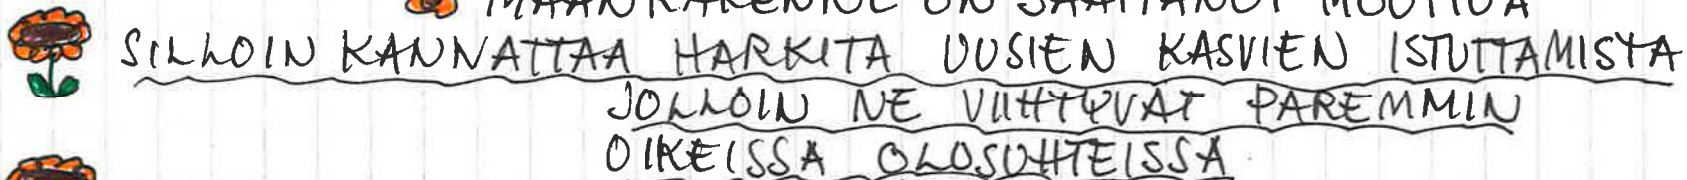 MAANRAKENNE ON SAATTANUT MUUTTUA
SILLOIN KANNATTAA HARKITA UUSIEN KASVIEN ISTUTTAMISTA
JOLLOIN NE VIIHTYVÄT PAREMMIN
OIKEISSA OLOSUHTEISSA